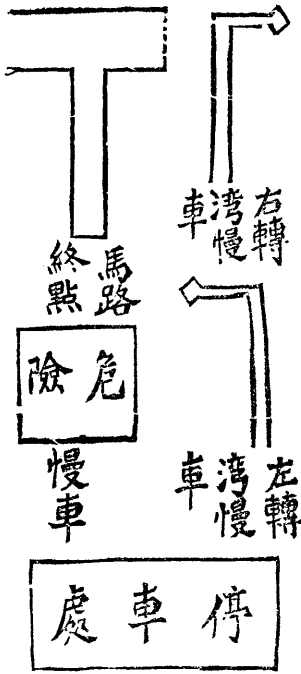 右轉
湾慢
車
馬路
終點
危險
慢車
左轉
湾慢
車
停車處